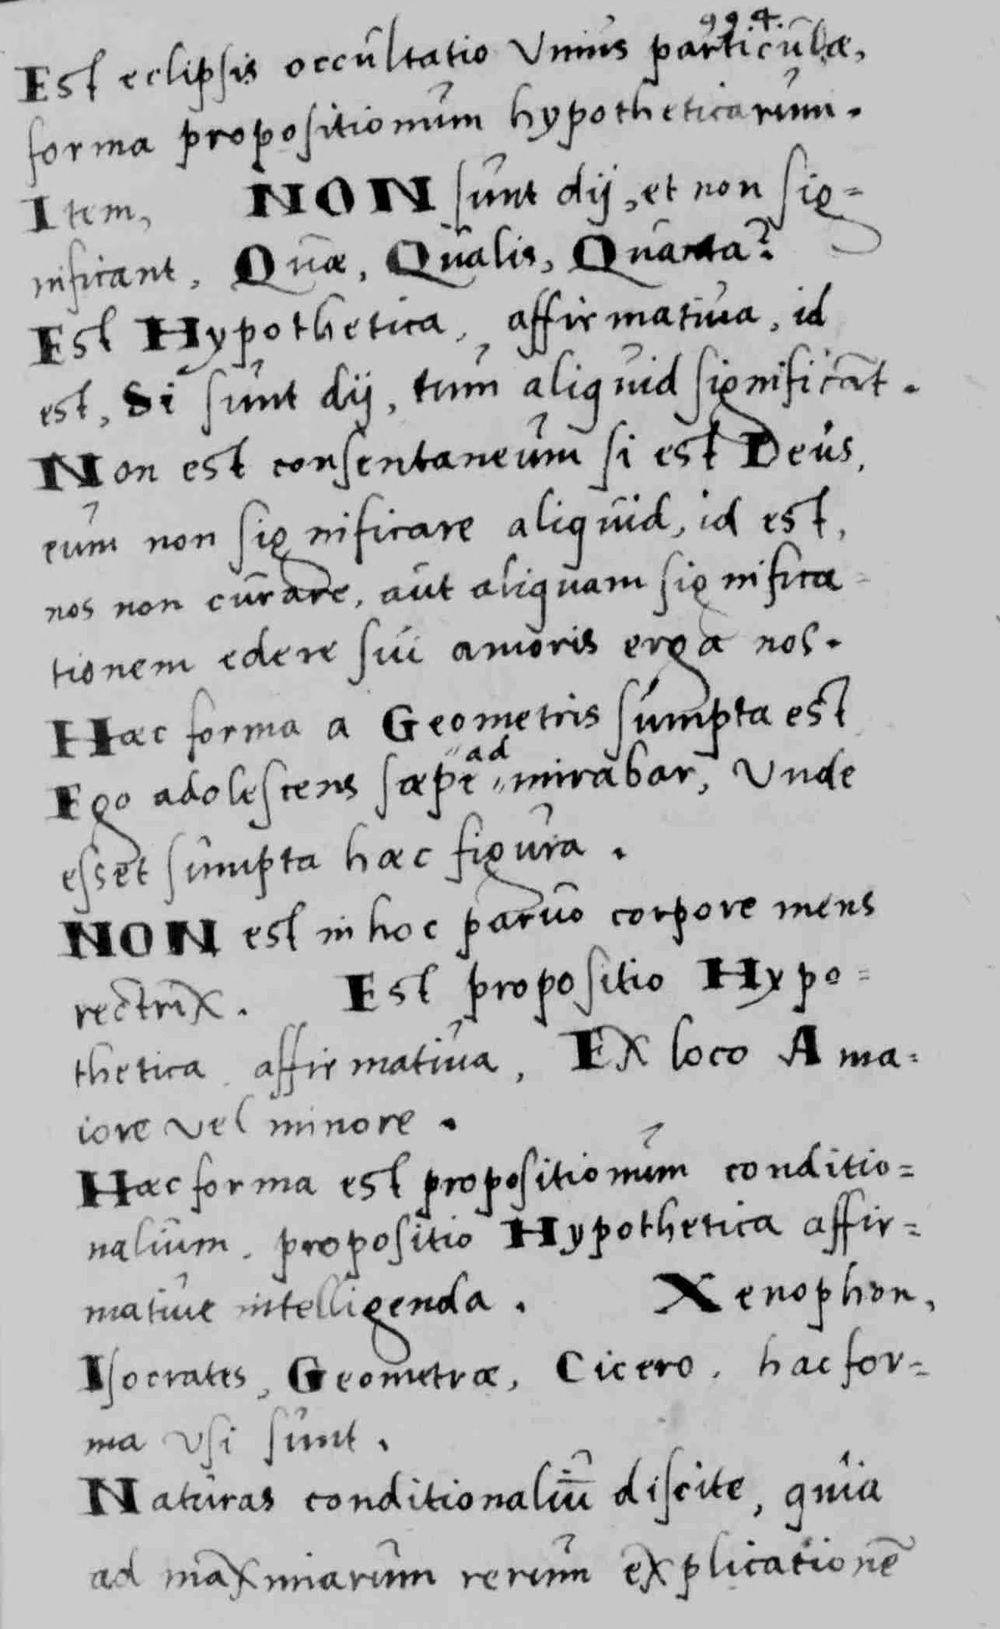 994.
Est eclipsis occultatio Vnius particulæ,
forma propositionum hypotheticarum.
Item, NON sunt dij, et non sig=
nificant, Quæ, Qualis, Quanta?
Est Hypothetica, affirmatiua, id
est, Si sunt dij, tum aliquid significāt.
Non est consentaneum si est Deus,
eum non significare aliquid, id est,
nos non curare, aut aliquam significa=
tionem edere sui amoris erga nos.
Hæc forma a Geometris sumpta est
Ego adolescens sæpe admirabar, Vnde
esset sumpta hæc figura.
NON est in hoc paruo corpore mens
rectrix. Est propositio Hypo=
thetica affirmatiua, Ex loco A ma=
iore vel minore.
Hæc forma est propositionum conditio=
nalium. propositio Hypothetica affir=
matiue intelligenda. Xenophon,
Isocrates, Geometræ, Cicero, hac for=
ma vsi sunt.
Naturas conditionaliū discite, quia
ad maximarum rerum explicationē